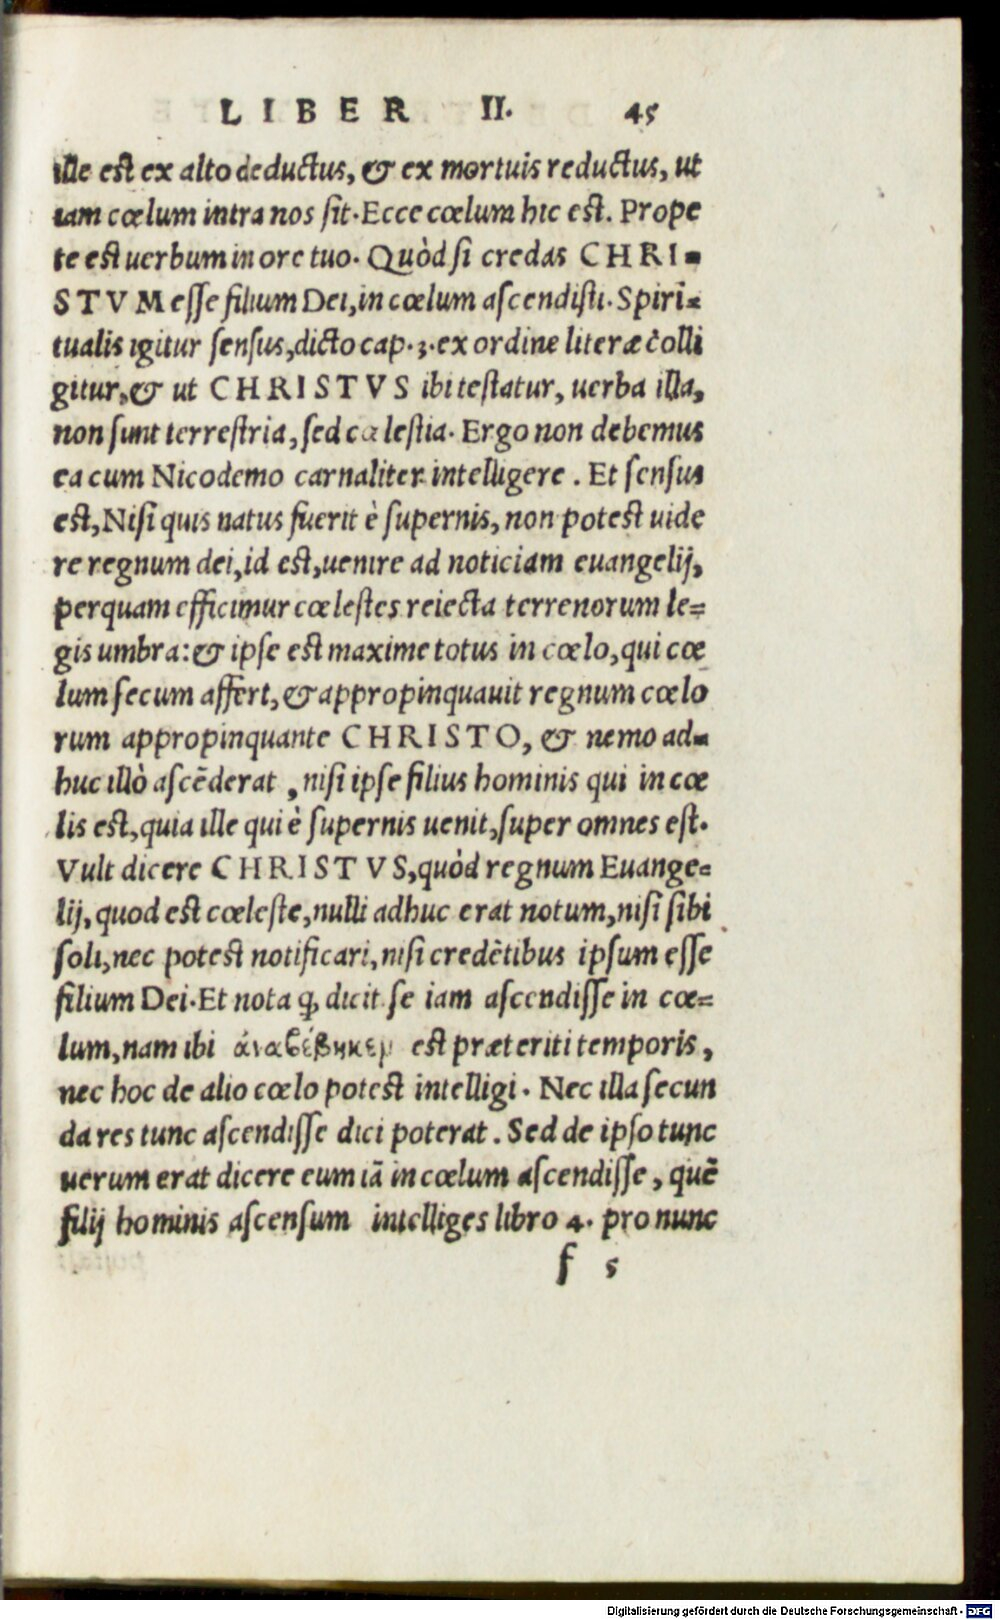 LIBER II. 45
ille est ex alto deductus, & ex mortuis reductus, ut
iam cœlum intra nos sit. Ecce cœlum hic est. Prope
te est uerbum in ore tuo. Quòd si credas CHRI-
STVM esse filium Dei, in cœlum ascendisti. Spiri-
tualis igitur sensus, dicto cap. 3. ex ordine literæ colli
gitur, & ut CHRISTVS ibi testatur, uerba illa,
non sunt terrestria, sed cœlestia. Ergo non debemus
ea cum Nicodemo carnaliter intelligere. Et sensus
est, Nisi quis natus fuerit è supernis, non potest uide
re regnum dei, id est, uenire ad noticiam euangelij,
per quam efficimur cœlestes reiecta terrenorum le=
gis umbra: & ipse est maxime totus in cœlo, qui cœ
lum secum affert, & appropinquauit regnum cœlo
rum appropinquante CHRISTO, & nemo ad-
huc illò ascēderat, nisi ipse filius hominis qui in cœ
lis est, quia ille qui è supernis uenit, super omnes est.
Vult dicere CHRISTVS, quòd regnum Euange=
lij, quod est cœleste, nulli adhuc erat notum, nisi sibi
soli, nec potest notificari, nisi credētibus ipsum esse
filium Dei. Et nota ꝙ dicit se iam ascendisse in cœ=
lum, nam ibi ἀναβέβηκεν est præteriti temporis,
nec hoc de alio cœlo potest intelligi. Nec illa secun
da res tunc ascendisse dici poterat. Sed de ipso tunc
uerum erat dicere eum iā in cœlum ascendisse, quē
filij hominis ascensum intelliges libro 4. pro nunc
f 5
Digitalisierung gefördert durch die Deutsche Forschungsgemeinschaft - DFG